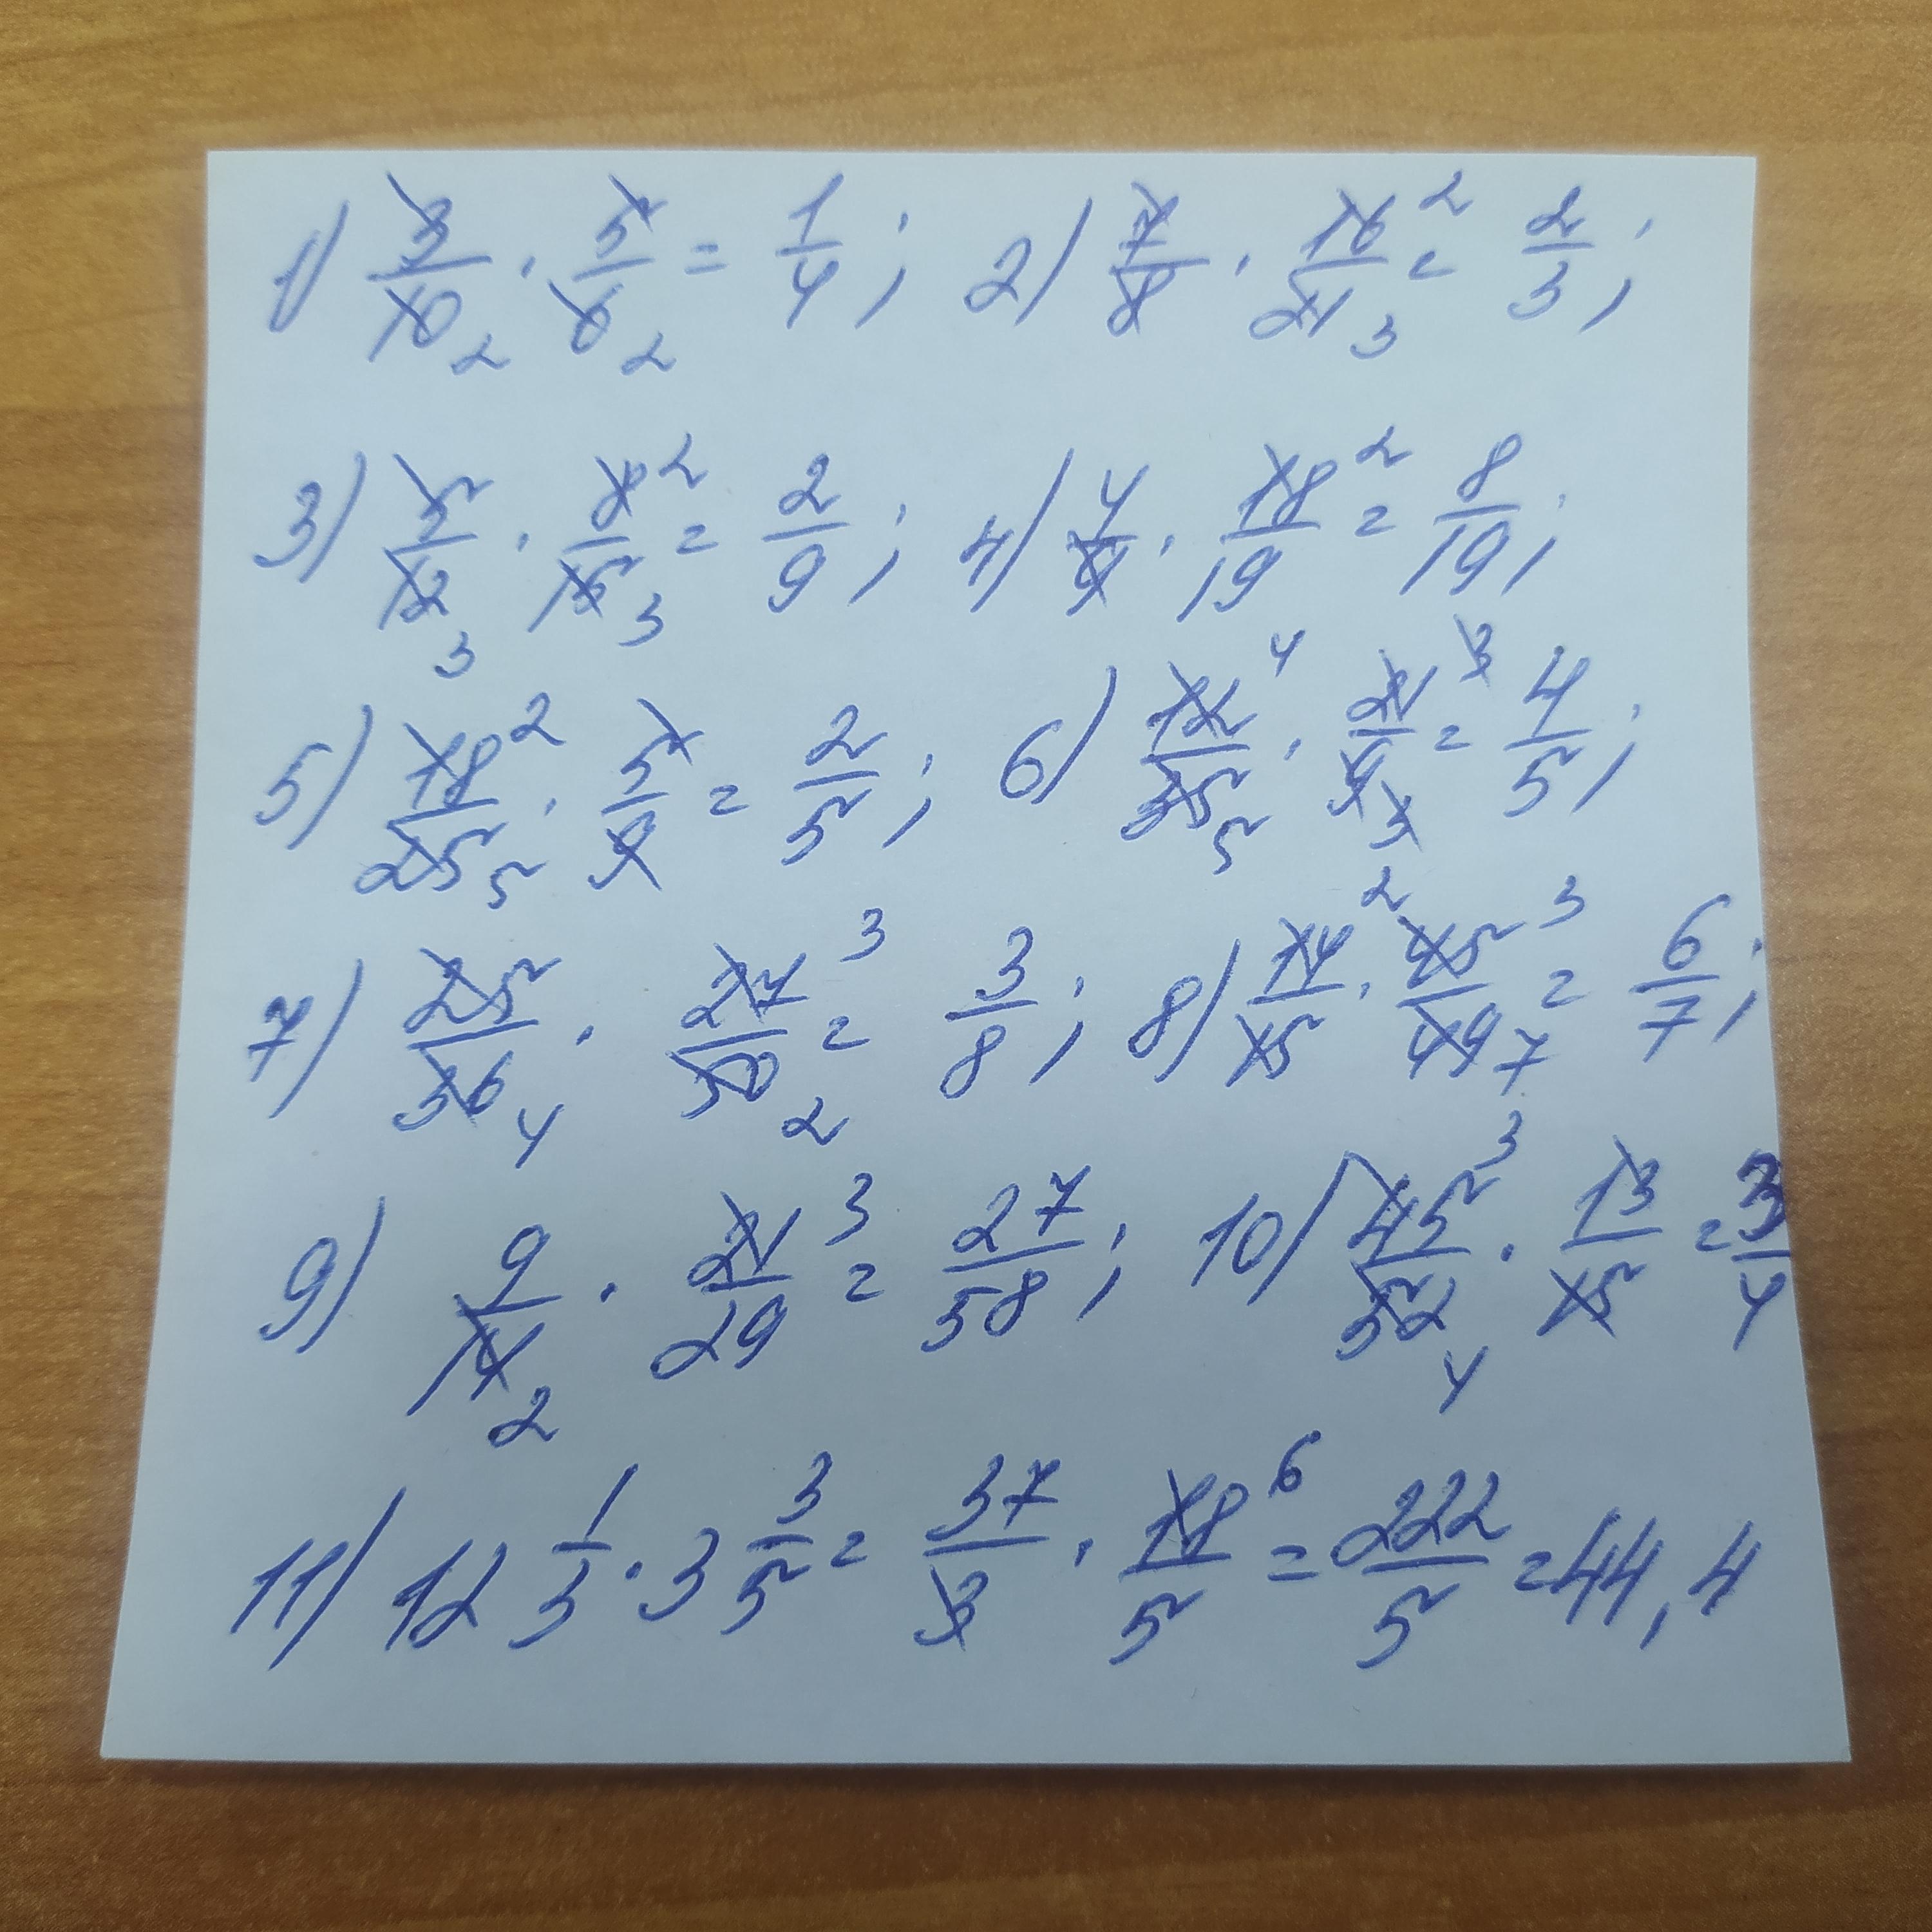 1) 3/10 2 · 5/6 2 = 1/4; 2) 7/8 · 16 2/21 3 = 2/3;
3) 5/12 3 · 8 2/15 3 = 2/9; 4) 4/9 · 18 2/19 = 8/19;
5) 18 2/25 5 · 5/9 = 2/5; 6) 12 4/35 5 · 21 3/9 3 = 4/5;
7) 25/36 4 · 27 3/50 2 = 3/8; 8) 14 2/15 · 45 3/49 7 = 6/7;
9) 9/14 2 · 21 3/29 = 27/58; 10) 45 3/52 4 · 13/15 = 3/4
11) 12 1/3 · 3 3/5 = 37/3 · 18 6/5 = 222/5 = 44,4